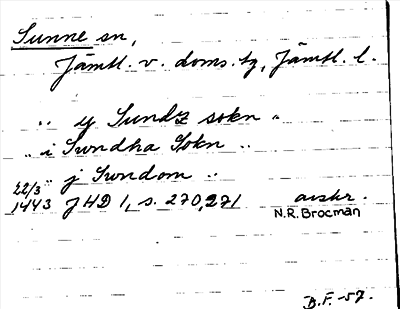 Sunne sn,
Jämtl. v. doms. tg, Jämtl. l.
.. y Sundz sokn ..
.. i Sundha Sokn ..
.. j Sundom ..
22/3
1443 JHD 1, s. 270, 271 avskr.
N.R. Brocman
B.F. -57.